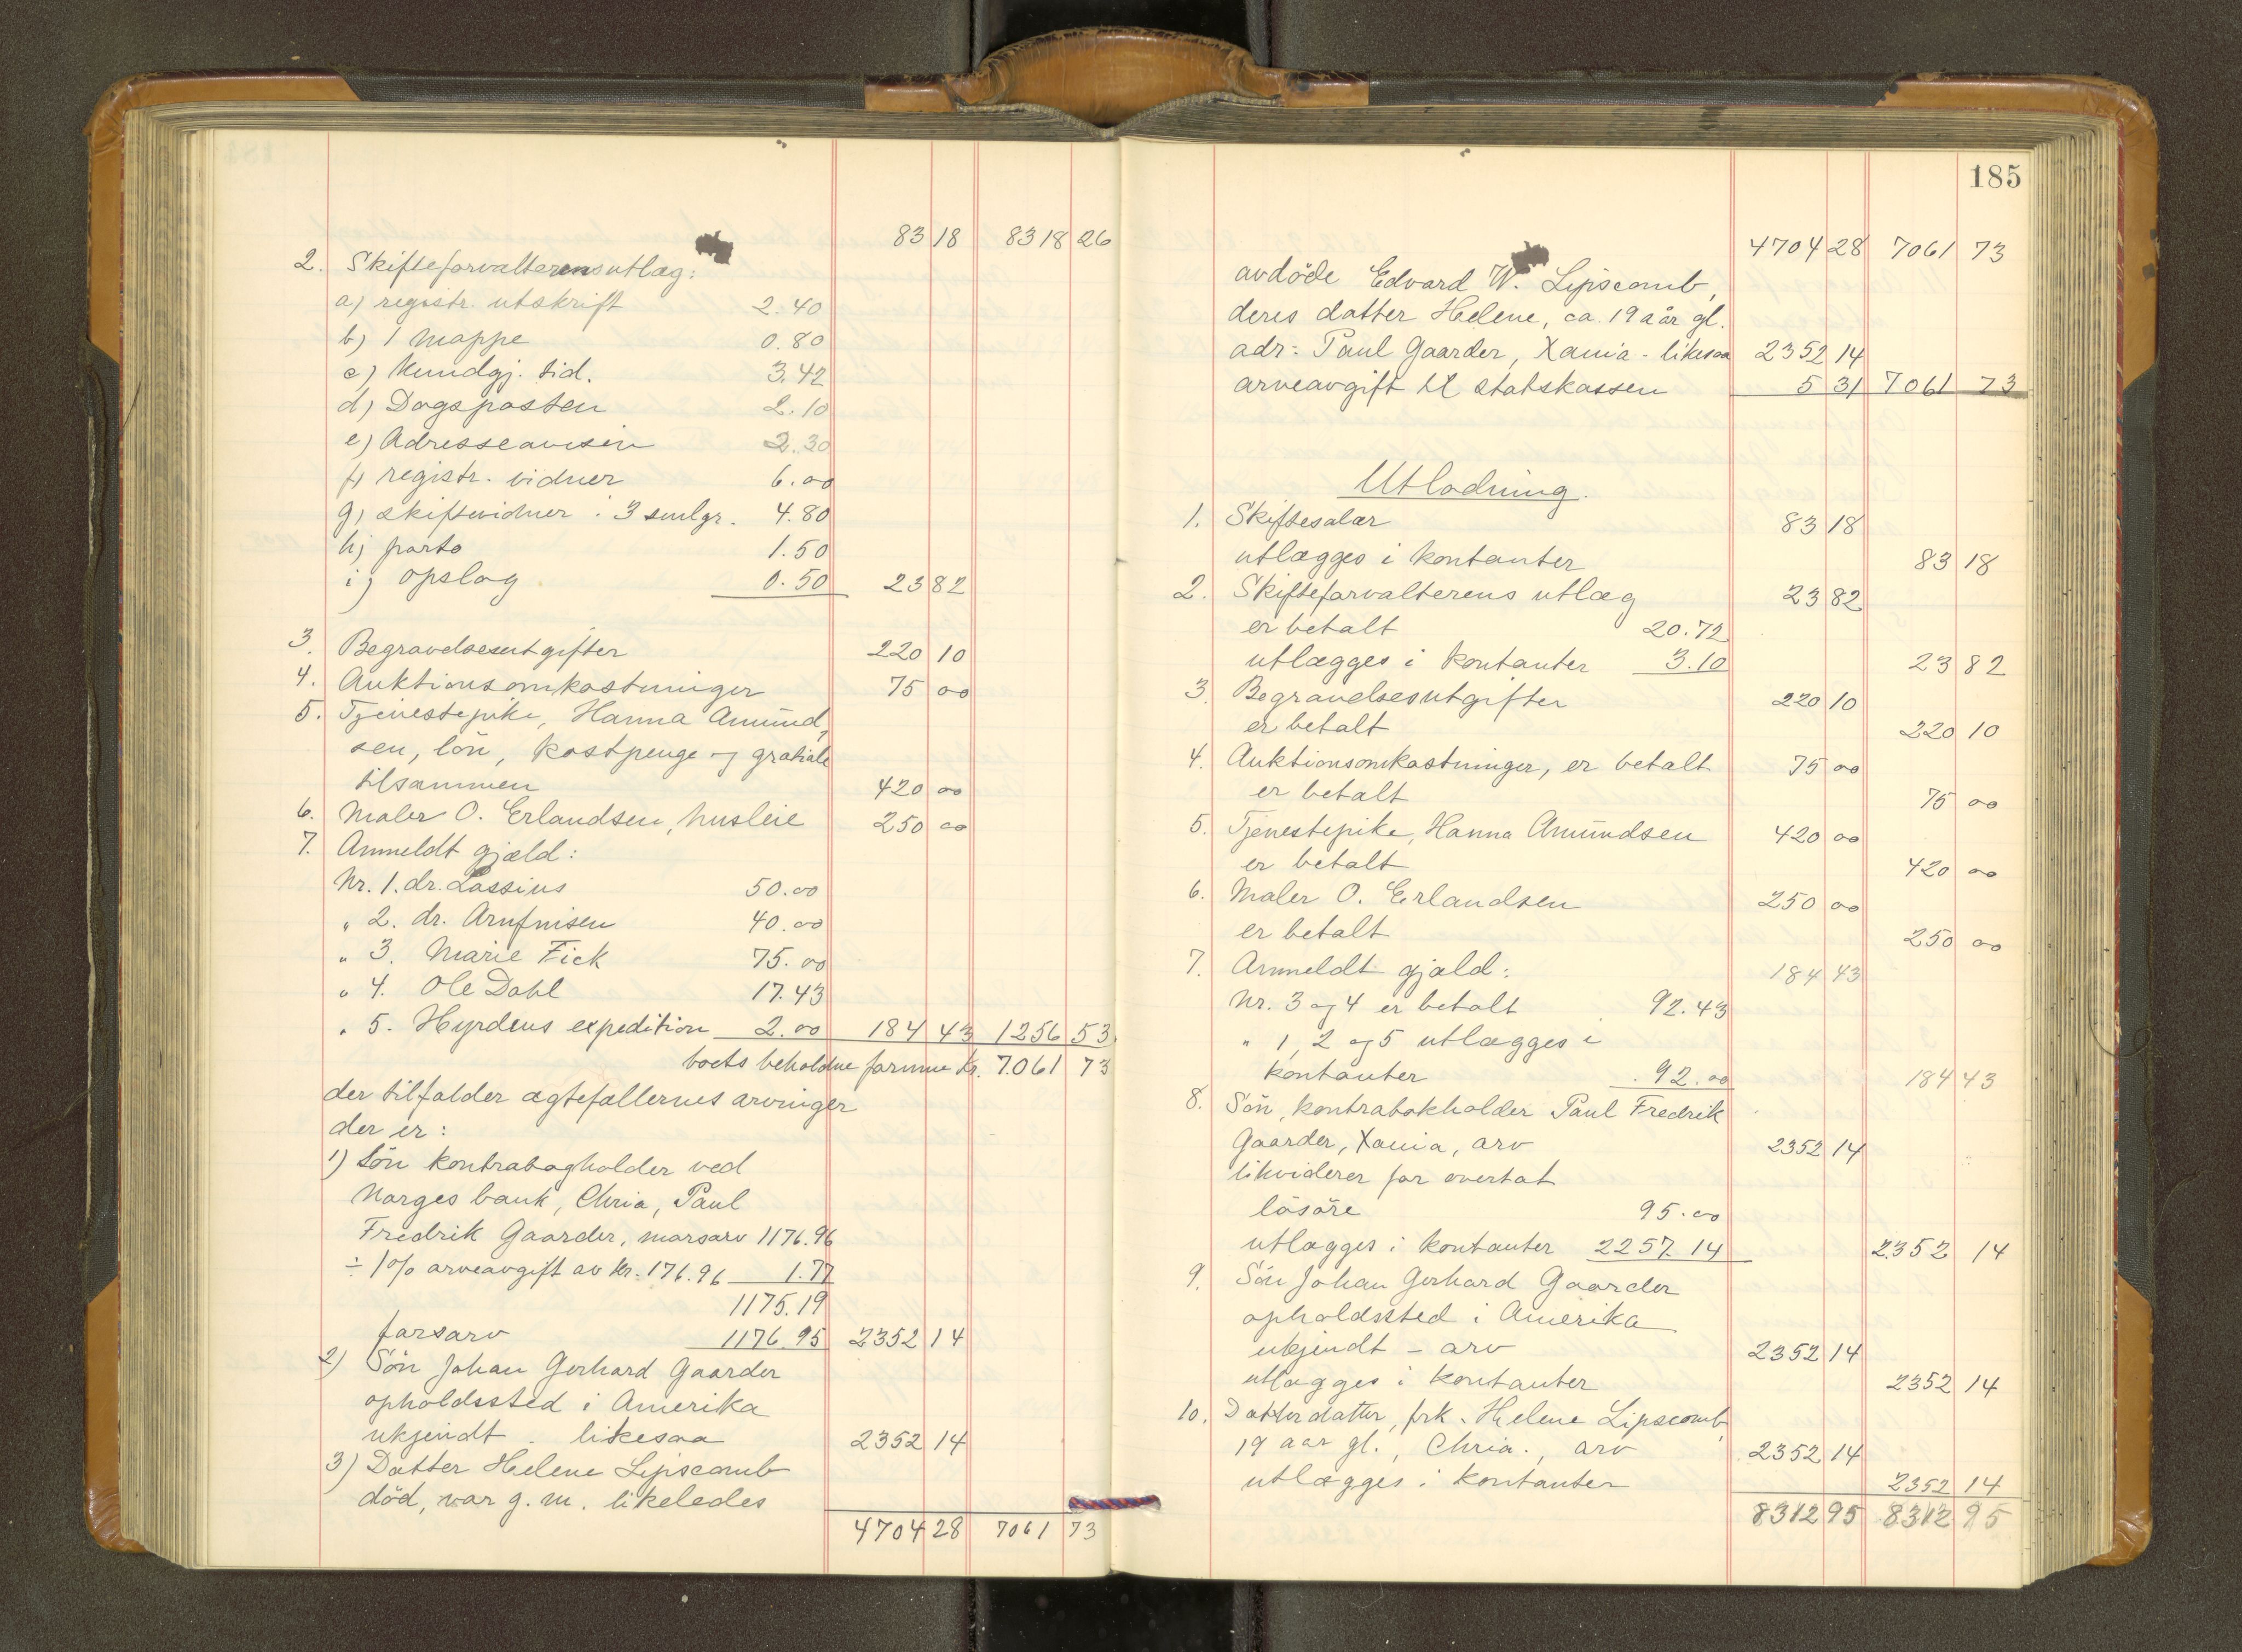 83 18 8318 26
2. Skifteforvalterens utlæg:
a) registr. utskrift 2.40
b) 1 mappe 0.80
c) Kundgj. tid. 3.42
d) Dagsposten 2.10
e) Adresseavisen 2.30
f) registr. vidner 6.00
g) skiftevidner i 3 smlgr. 4.80
h) porto 1.50
i) opslag 0.50 23 82
3. Begravelsesutgifter 220 10
4. Auktionsomkostninger 75 00
5. Tjenestepike, Hanna Amund,
sen, lön, kostpenge og gratiale
tilsammen 420 00
6. Maler O. Erlandsen, husleie 250 00
7. Anmeldt gjæld:
Nr. 1. dr. Lassius 50.00
" 2. dr. 40.00
" 3. Marie Fick 75.00
" 4. Ole Dahl 17.43
" 5. Hyrdens expedition 2.00 184 43 1256 53
boets beholdne formue kr. 7061 73
der tilfalder ægtefællernes arvinger
der er:
1) Sön kontrabogholder ved
Norges bank, Chria, Paul
Fredrik Gaarder, morsarv 1176.96
÷ 1% arveavgift av kr. 176.96 1.77
1175.19
farsarv 1176.95 2352 14
2) Sön Johan Gerhard Gaarder
opholdssted i Amerika
ukjendt - likesaa 2352 14
3) Datter Helene Lipscomb
död, var g. m. likeledes
4704 28 7061 73
185
4704 28 7061 73
avdöde Edvard W. Lipscomb,
deres datter Helene, ca. 19 aår gl.
adr: Paul Gaarder, Xania - likesaa 2352 14
arveavgift til statskassen 5 31 7061 73
Utlodning.
1. Skiftesalær 83 18
utlægges i kontanter 83 18
2. Skifteforvalterens utlæg 23 82
er betalt 20.72
utlægges i kontanter 3.10 23 82
3. Begravelsesutgifter 220 10
er betalt 220 10
4. Auktionsomkostninger, er betalt 75 00
er betalt 75 00
5. Tjenestepike, Hanna Amundsen 420 00
er betalt 420 00
6. Maler O. Erlandsen 250 00
er betalt 250 00
7. Anmeldt gjæld: 184 43
Nr. 3 og 4 er betalt 92.43
" 1, 2 og 5 utlægges i
kontanter 92.00 184 43
8. Sön, kontrabokholder Paul Fredrik
Gaarder, Xania, arv 2352 14
likviderer for overtat
lösöre 95.00
utlægges i kontanter 2257.14 2352 14
9. Sön Johan Gerhard Gaarder
opholdssted i Amerika
ukjendt - arv 2352 14
utlægges i kontanter 2352 14
10. Datterdatter, frk. Helene Lipscomb,
19 aar gl., Chria., arv 2352 14
utlægges i kontanter 2352 14
8312 95 8312 95